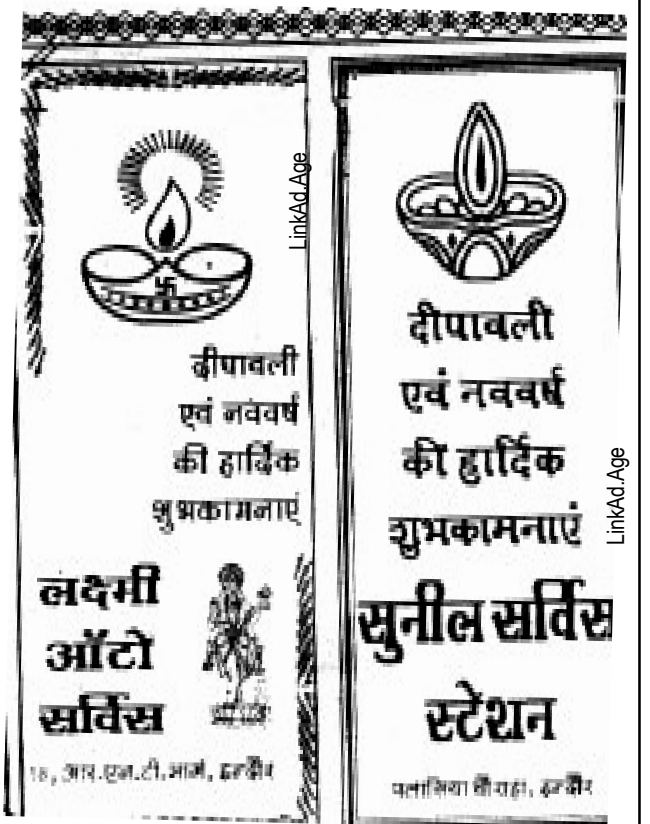 LinkAd.Age
दीपावली
एवं नववर्ष
की हार्दिक
शुभकामनाएं
लक्ष्मी
ऑटो
सर्विस
18, आर.एन.टी.मार्ग, इन्दौर
दीपावली
एवं नववर्ष
की हार्दिक
शुभकामनाएं
सुनील सर्विस
स्टेशन
पलासिया चौराहा, इन्दौर
LinkAd.Age